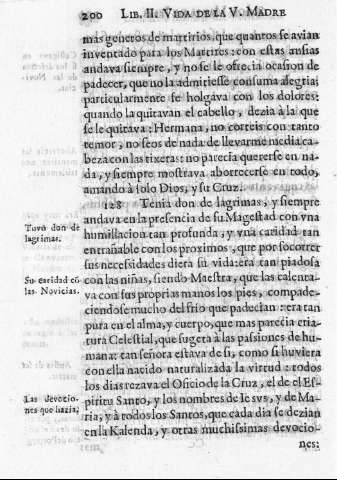 200 LIB. II. VIDA DE LA V. MADRE
mas generos de martirios, que quantos se avian
inventado para los Martires: con estas ansias
andava siempre, y no se le ofrecia ocasion de
padecer, que no la admitiesse con suma alegria;
particularmente se holgava con los dolores:
quando la quitavan el cabello, dezia à la que
se le quitava: Hermana, no corteis con tanto
temor, no seos de nada de llevarme media ca-
beza con las tixeras: no parecia quererse en na-
da, y siempre mostrava aborrecerse en todo,
amando à solo Dios, y su Cruz.
128 Tenia don de lagrimas, y siempre
andava en la presencia de su Magestad con vna
Tuvo don de
lagrimas.
humillacion tan profunda, y vna caridad tan
entrañable con los proximos, que por socorrer
sus necessidades diera su vida: era tan piadosa
Su caridad cõ
las Novicias.
con las niñas, siendo Maestra, que las calenta-
va con sus proprias manos los pies, compade-
ciendose mucho del frio que padecian: era tan
pura en el alma, y cuerpo, que mas parecia cria-
tura Celestial, que sugeta à las passiones de hu-
mana: tan señora estava de si, como si huviera
con ella nacido naturalizada la virtud: todos
los dias rezava el Oficio de la Cruz, el de el Es-
Las devocio-
nes que hazia;
piritu Santo, y los nombres de Iesvs, y de Ma-
ria, y à todos los Santos, que cada dia se dezian
en la Kalenda, y otras muchissimas devocio-
nes: